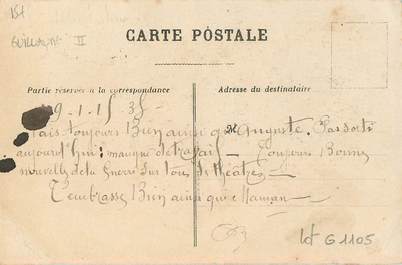 Guillaume II
CARTE POSTALE
Partie réservée à la correspondance
Adresse du destinataire
9-1-15
Vais toujours Bien ainsi que Auguste. Pas Sorti
M
aujourd'hui: manque de travail - Toujours Bonnes
nouvelles de la Guerre sur tous les théâtres -
T'embrasse Bien ainsi que Maman -
lot G 1105